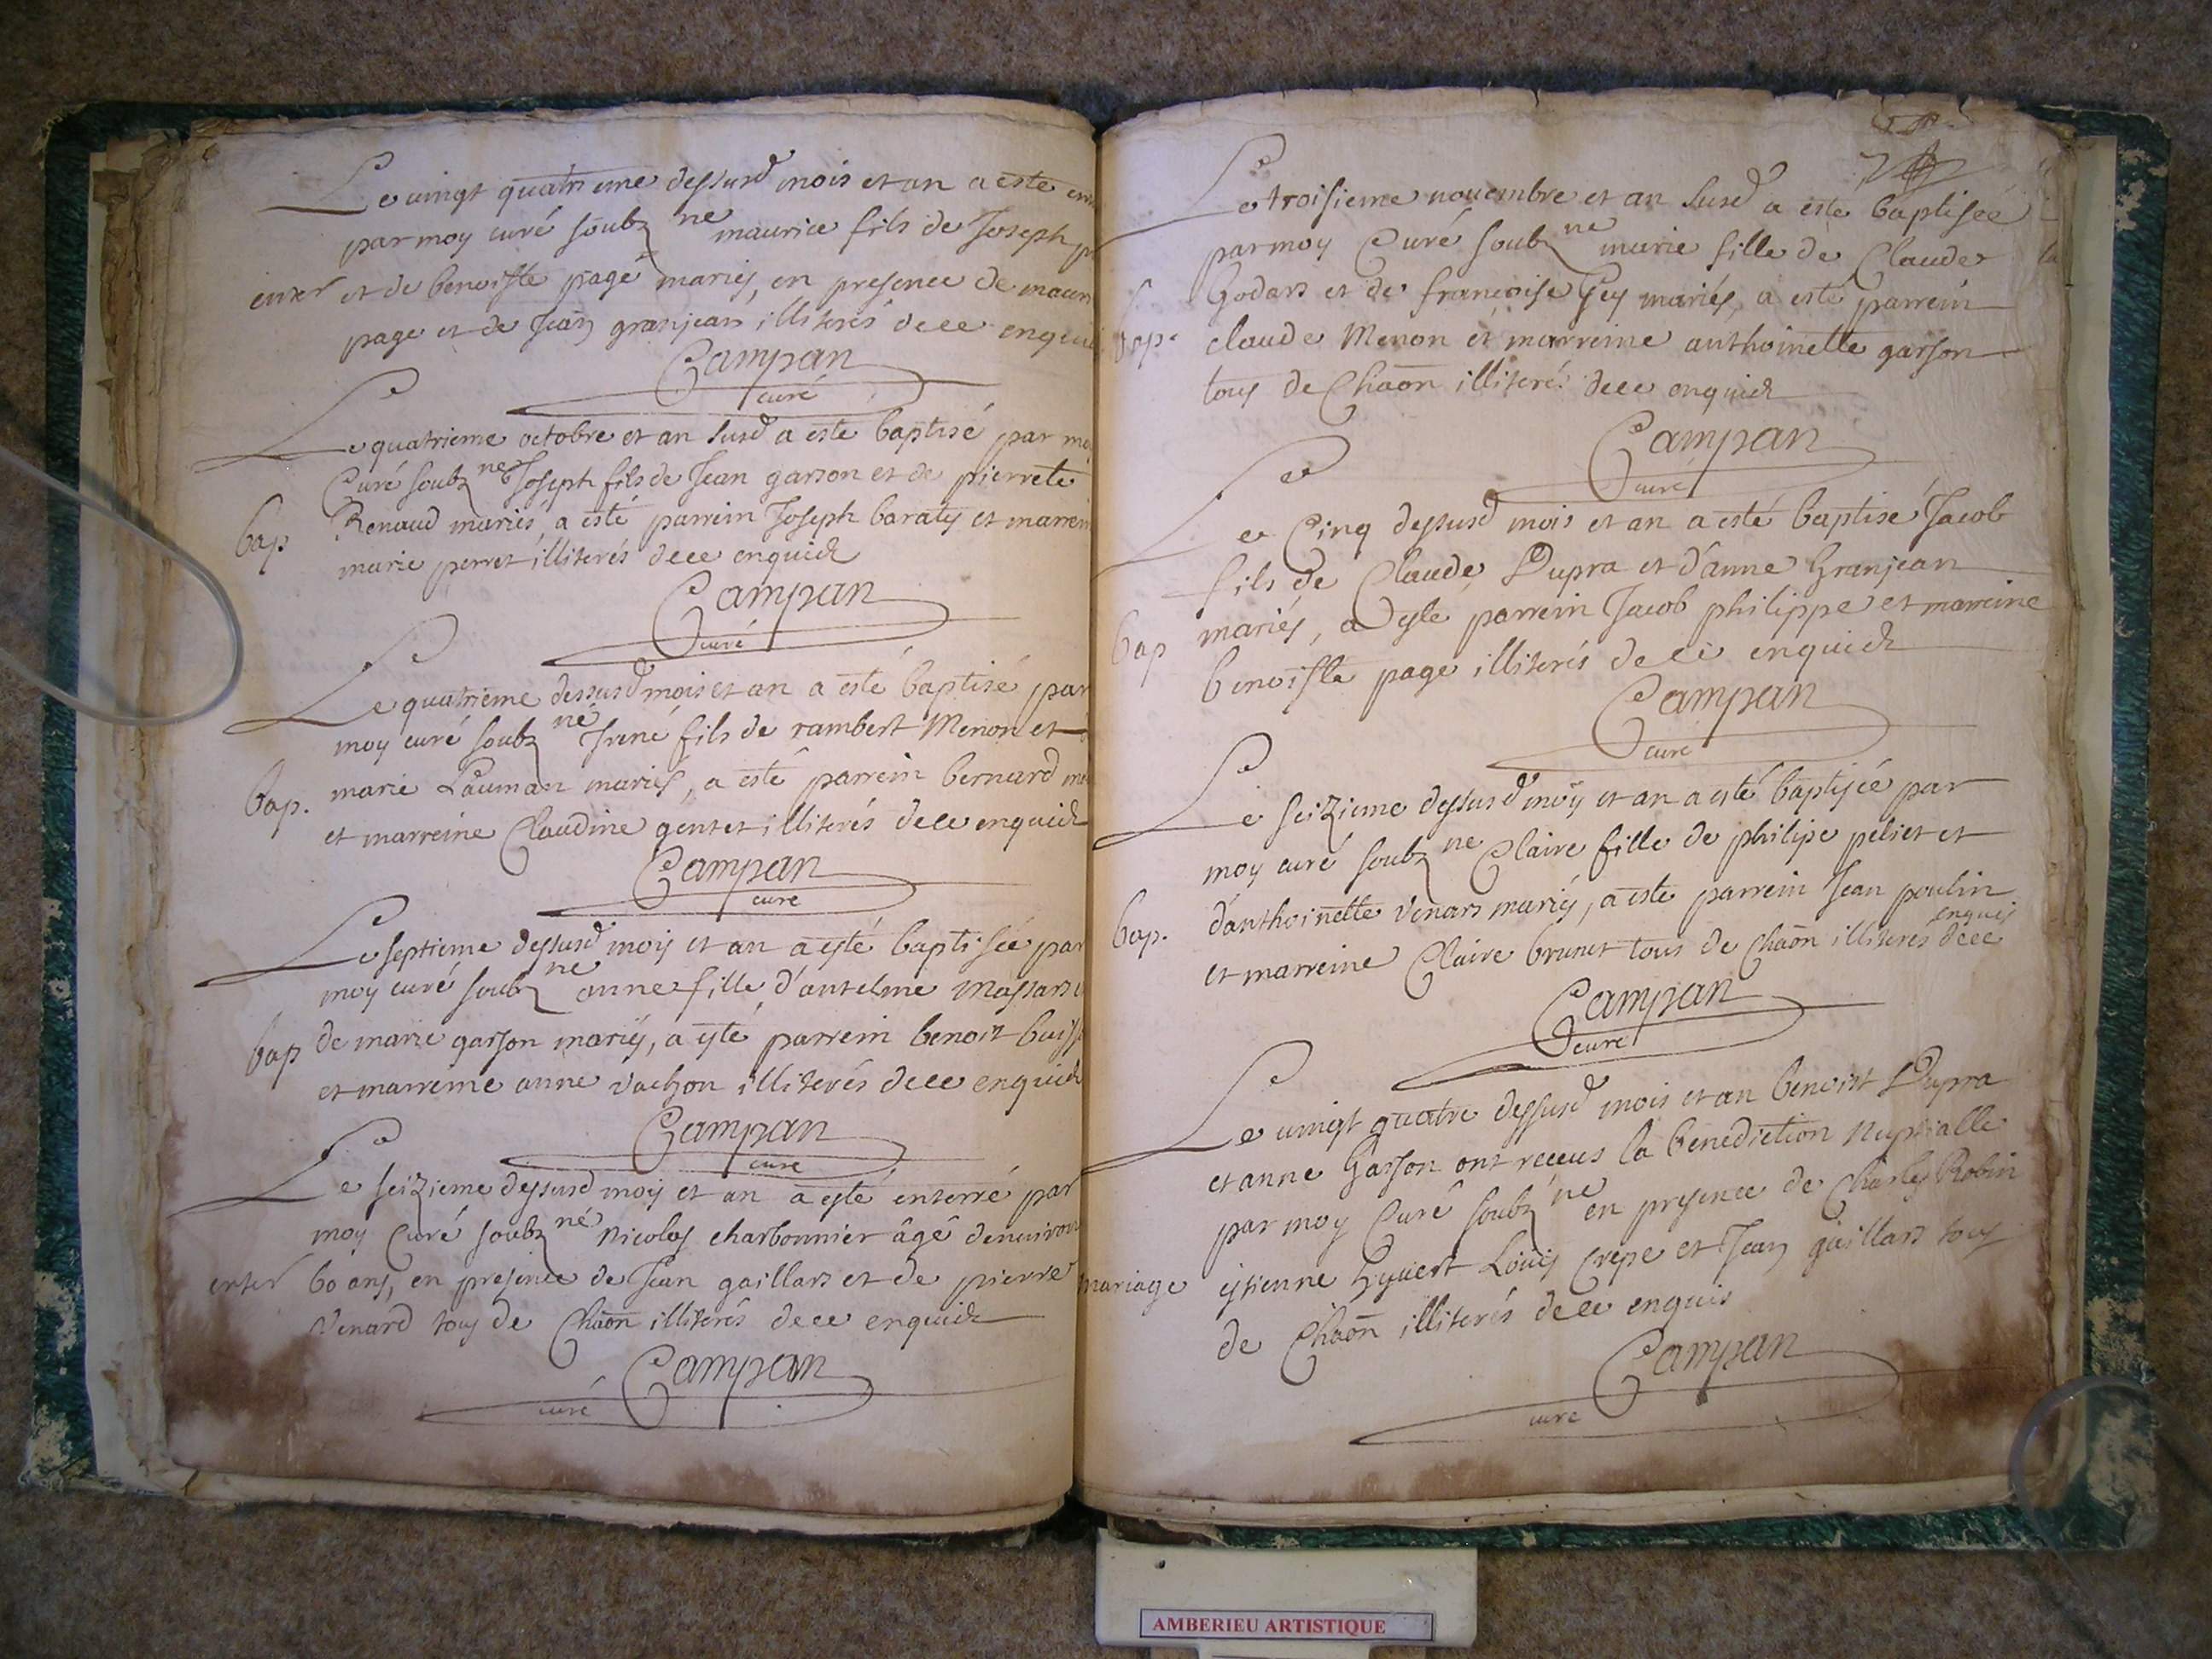 Le vingt quatrieme dessusd mois et an a este
par moy curé soubz ne maurice fils de Joseph
enter et de benoiste page mariés, en presence de
page et de Jean granjean illiterés de ce
Campan
curé
Le quatrieme octobre et an susd a esté baptisé par
Curé soubz ne Joseph fils de Jean garson et de pierrete
bap Renaud mariés a esté parrein Joseph baraty et
marie perret illiterés de ce enquich
Campan
curé
Le quatrieme dessusd mois et an a esté baptisé par
moy curé soubz né Irené fils de rambert Menon et
bap. marie Lauman mariés, a esté parrein bernard
et marreine Claudine gentet illiterés de ce enquich
Campan
curé
Le septieme dessusd mois et an a esté baptisée par
moy curé soubz ne anne fille d'antelme
bap de marie garson mariés, a esté parrein benoit
et marreine anne vachon illiterés de ce enquich
Campan
curé
Le seizieme dessusd mois et an a esté enterré par
moy Curé soubz né Nicolas charbonnier âgé denuiron
enter 60 ans, en presence de Jean gaillars et de pierre
Venard tous de Chaon illiterés de ce enquich
Campan
curé
Le troisieme nouembre et an susd a esté baptisée
par moy Curé soubz ne marie fille de Claude
Godars et de françoise Gey mariés, a esté parrein
bap. claude Menon et marreine anthoinette garson
tous de Chaon illiterés de ce enquich
Campan
curé
Le Cinq dessusd mois et an a esté baptisé Jacob
fils de Claude Dupra et d'anne Granjean
bap mariés, a este parrein Jacob philippe et marreine
benoiste page illiterés de ce enquich
Campan
curé
Le seizieme dessusd mois et an a esté baptisée par
moy curé soubz ne Claire fille de philipe peliet et
bap. d'anthoinette venars mariés, a este parrein Jean poulin
et marreine Claire brunet tous de Chaon illiterés de ce enquis
Campan
curé
Le vingt quatre dessusd mois et an benoist Dupra
et anne Garson ont receus la benediction Nuptialle
par moy Curé soubz ne en presence de Charles Robin
mariage estienne hyvert Louis Crepe et Jean gaillars tous
de Chaon illiterés de ce enquis
Campan
curé
AMBERIEU ARTISTIQUE